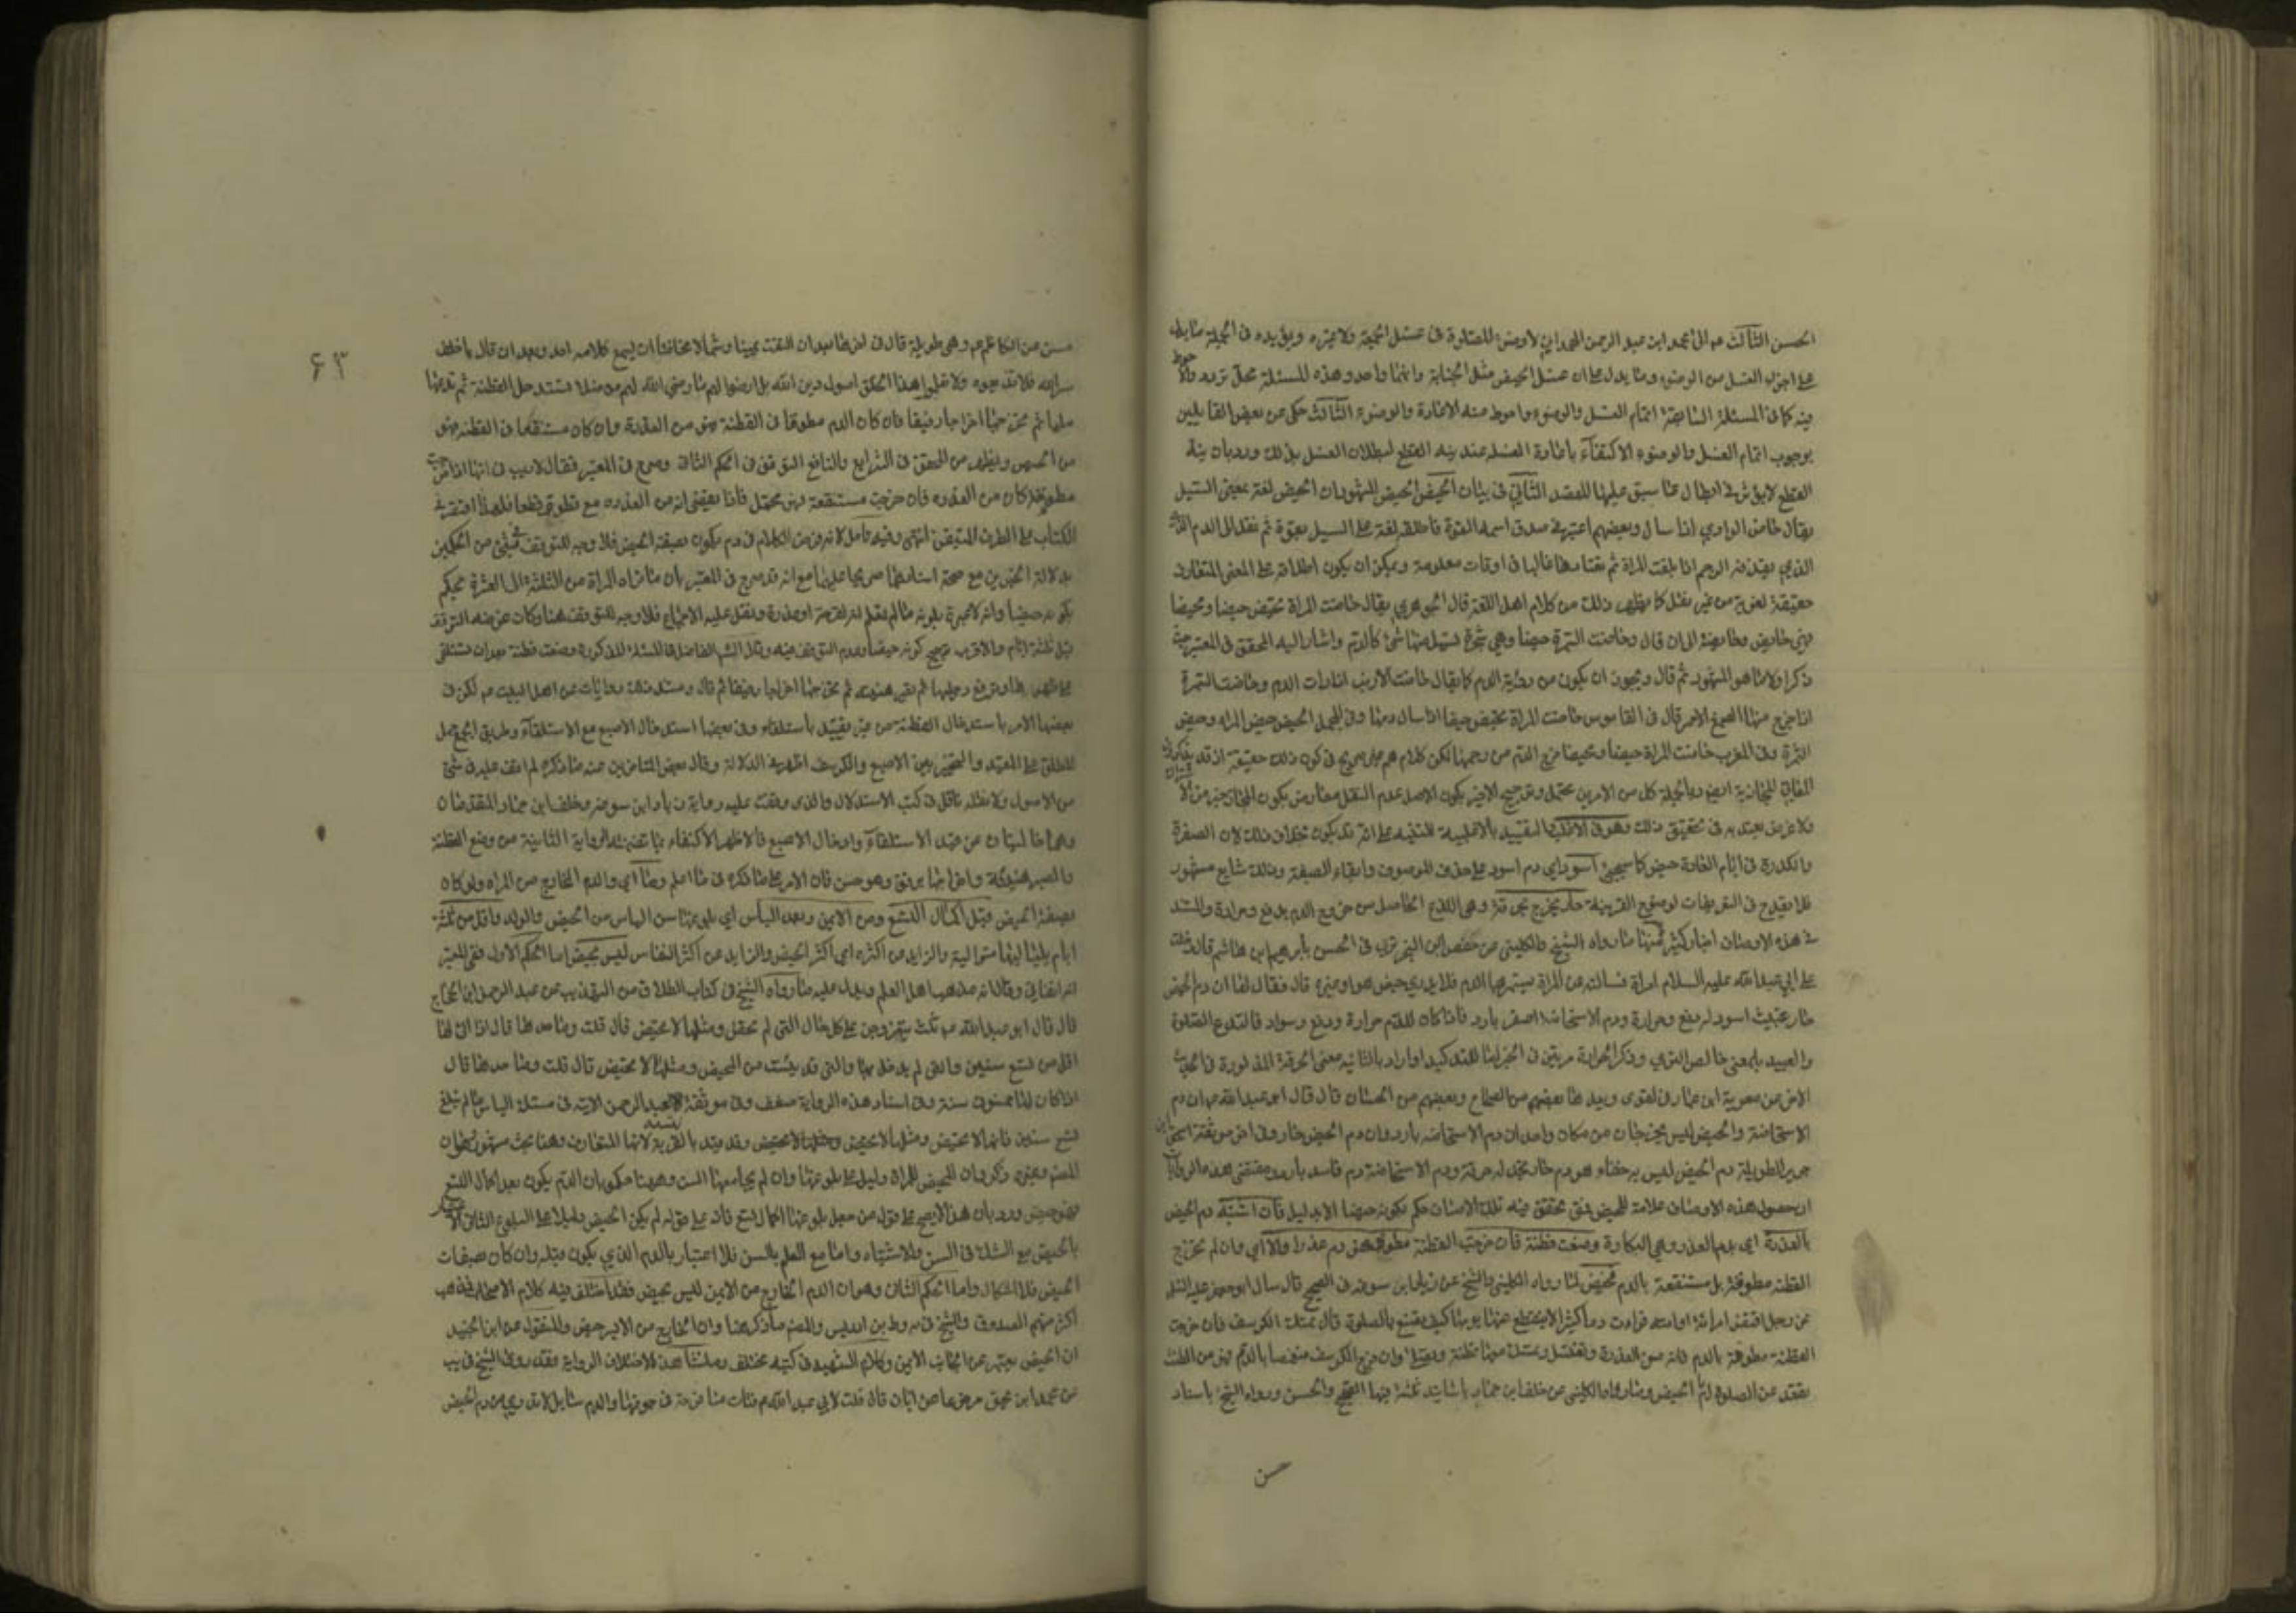 الحسن الثالث عبد الرحمن الهمداني لا وضوء للصلوة في غسل الجمعة ولا غيره ويؤيده في الجملة ما يدل
على اجزاء الغسل من الوضوء ومما يدل على ان غسل الحيض مثل الجنابة وانهما واحد وهذه المسئلة محل تردد والاحوط
فيه كما في المسئلة السابقة اتمام الغسل والوضوء واحوط منه الاعادة والوضوء الثالث حكى عن بعض القايلين
بوجوب اتمام الغسل والوضوء الاكتفاء باعادة الغسل عند نية القطع لبطلان الغسل بذلك ورد بان نية
القطع لا يؤثر في ابطال ما سبق عليها المقصد الثاني في بيان الحيض الحيض المشهور ان الحيض لغة بمعنى السيل
يقال حاض الوادي اذا سال وبعضهم اعتبر في صدق اسمه القوة فاطلقه لغة على السيل بقوة ثم نقل الى الدم
الذي يقذفه الرحم اذا بلغت المراة ثم تعتادها غالبا في اوقات معلومة ويمكن ان يكون اطلاقه على المعنى المتعارف
حقيقة لغوية من غير نقل كما يظهر ذلك من كلام اهل اللغة قال الجوهري يقال حاضت المراة تحيض حيضا ومحيضا
فهي حايض وحايضة الى ان قال وحاضت السمرة حيضا وهي شجرة يسيل منها شئ كالدم واشار اليه المحقق في المعتبر حيث
ذكر اولا ما هو المشهور ثم قال ويجوز ان يكون من رؤية الدم كما يقال حاضت الارنب اذا رات الدم وحاضت السمرة
اذا خرج منها الصمغ الاحمر قال في القاموس حاضت المراة تحيض حيضا اذا سال دمها وفي المجمل الحيض حيض المراة وحيض
السمرة وفي المغرب حاضت المراة حيضا ومحيضا خرج الدم من رحمها لكن كلامهم غير صريح في كون ذلك حقيقة اذ قد يذكرون
المعاني المجازية ايضا وبالجملة كل من الامرين محتمل وترجيح الاخير بكون الاصل عدم النقل معارض بكون المجاز خير من
ولا غرض يعتد به في تحقيق ذلك وهو في الاغلب التقييد بالاغلبية للتنبيه على انه قد يكون بخلاف ذلك لان الصفرة
والكدرة في ايام العادة حيض كما سيجئ اسود اي دم اسود على حذف الموصوف وابقاء الصفة وذلك شايع مشهور
فلا يقدح في التعريفات لوضوح القرينة حار يخرج بحرقة وهي اللذع الحاصل من خروج الدم بدفع وحرارة والمستند
في هذه الاوصاف اخبار كثيرة منها ما رواه الشيخ والكليني عن حفص ابن البختري في الحسن بابرهيم ابن هاشم قال دخلت
على ابي عبد الله عليه السلام امراة فسالته عن المراة يستمر بها الدم فلا يدري حيض هو او غيره قال فقال لها ان دم الحيض
حار عبيط اسود له دفع وحرارة ودم الاستحاضة اصفر بارد فاذا كان للدم حرارة ودفع وسواد فلتدع الصلوة
والعبيط بالمعنى خالص الطري وذكر الحرارة مرتين في الخبر اما للتاكيد او اراد بالثانية معنى الحرقة المذكورة في
الاخر عن معوية ابن عمار بعضهم من الصحاح وبعضهم من الحسان قال قال ابو عبد الله ع ان دم
الاستحاضة والحيض ليس يخرجان من مكان واحد ان دم الاستحاضة بارد وان دم الحيض حار وفي اخر موثقة اسحق ابن
جرير الطويلة دم الحيض ليس به خفاء هو دم حار تجد له حرقة ودم الاستحاضة دم فاسد بارد ومقتضى هذه الروايات
ان حصول هذه الاوصاف علامة للحيض فمتى تحقق فيه تلك الاوصاف حكم بكونه حيضا الا بدليل فان اشتبه دم الحيض
بالعذرة اي بدم العذرة وهي البكارة وضعت قطنة فان خرجت القطنة مطوقة فهو دم عذرة والا اي وان لم تخرج
القطنة مطوقة بل مستنقعة بالدم فحيض لما رواه الكليني والشيخ عن زياد ابن سوقة في الصحيح قال سال ابو جعفر عليه السلم
عن رجل افتض امراته او امته فرات دما كثيرا لا ينقطع عنها يومها كيف يصنع بالصلوة قال تمسك الكرسف فان خرجت
القطنة مطوقة بالدم فانه من العذرة وتغتسل وتمسك معها قطنة وتصلي وان خرج الكرسف منغمسا بالدم فهو من الطمث
تقعد عن الصلوة ايام الحيض وما رواه الكليني عن خلف ابن حماد باسانيد ثلثة فيها الصحيح والحسن ورواه الشيخ باسناد
حسن
۶۳
حسن عن الكاظم ع وهي طويلة قال في اخرها بعد ان التفت يمينا وشمالا مخافة ان يسمع كلامه احد وبعد ان قال يا خلف
سر الله فلا تذيعوه ولا تعلموا هذا الخلق اصول دين الله بل ارضوا لهم ما رضي الله لهم من ضلال تستدخل القطنة ثم تدعها
مليا ثم تخرجها اخراجا رفيقا فان كان الدم مطوقا في القطنة فهو من العذرة وان كان مستنقعا في القطنة فهو
من الحيض ويظهر من المحقق في الشرايع والنافع التوقف في الحكم الثاني وصرح في المعتبر فقال لا ريب في انها اذا خرجت
مطوقة كان من العذرة فان خرجت مستنقعة فهو محتمل فاذا يقضى انه من العذرة مع تطوق قطعا فلهذا اقتصر في
الكتاب على الطرف المتيقن انتهى وفيه تامل لان الكلام في دم يكون بصفة الحيض فلا وجه للتوقف في شئ من الحكمين
بدلالة الخبرين مع صحة اسنادهما صريحا عليهما مع انه قد صرح في المعتبر بان ما تراه المراة من الثلثة الى العشرة يحكم
بكونه حيضا وانه لا عبرة بلونه ما لم يعلم انه لقرحة او عذرة ونقل عليه الاجماع فلا وجه للتوقف هنا وكان غرضه التوقف
قبل ثلثة ايام والاقرب ترجيح كونه حيضا وعدم التوقف فيه وقال الشارح الفاضل المسئلة المذكورة وضعت قطنة بعد ان تستلقي
على ظهرها وترفع رجليها ثم تصبر هنيئة ثم تخرجها اخراجا رفيقا ثم قال ومستند ذلك روايات عن اهل البيت ع لكن في
بعضها الامر باستدخال القطنة من غير تقييد باستلقاء وفي بعضها استدخال الاصبع مع الاستلقاء وطريق الجمع حمل
المطلق على المقيد والتخيير بين الاصبع والكرسف اظهر في الدلالة وقال بعض المتاخرين عنه ما ذكره لم اقف عليه في شئ
من الاصول ولا نقله ناقل في كتب الاستدلال والذي وقفت عليه رواية زياد ابن سوقة وخلف ابن حماد المتقدمتان
وهما خاليتان عن قيد الاستلقاء وادخال الاصبع فالاظهر الاكتفاء بما تضمنه الرواية الثانية من وضع القطنة
والصبر هنيئة واخراجها برفق وهو حسن فان الامر على ما ذكره في ما اعلم وما اي والدم الخارج من المراة ولو كان
بصفة الحيض قبل اكمال التسع ومن الايمن وبعد الياس اي بلوغها سن الياس من الحيض والولد واقل من ثلثة
ايام بلياليها متوالية والزايد عن اكثره اي اكثر الحيض والزايد عن اكثر النفاس ليس بحيض اما الحكم الاول ففي المعتبر
انه اتفاقي وقال انه مذهب اهل العلم ويدل عليه ما رواه الشيخ في كتاب الطلاق من التهذيب عن عبد الرحمن ابن الحجاج
قال قال ابو عبد الله ع ثلث يتزوجن على كل حال التي لم تحض ومثلها لا تحيض قال قلت وما حدها قال اذا اتى لها
اقل من تسع سنين والتي لم يدخل بها والتي قد يئست من المحيض ومثلها لا تحيض قال قلت وما حدها قال
اذا كان لها خمسون سنة وفي اسناد هذه الرواية ضعف وفي موثقة لعبد الرحمن الاتية في مسئلة الياس ما لم تبلغ
تسع سنين فانها لا تحيض ومثلها لا تحيض وقد يقيد بالقمرية لانها المتعارف وهنا بحث مشهور وهو ان
المصنف وغيره ذكروا ان الحيض للمراة دليل على بلوغها وان لم يجامعها السن وههنا حكموا بان الدم يكون بعد اكمال التسع
فهو حيض ورد بان هذا لا يصح على قول من جعل بلوغها اكمال التسع فان على قوله لم يكن الحيض دليلا على البلوغ الثاني الاعتبار
بالحيض مع الشك في السن والاشتباه واما مع العلم بالسن فلا اعتبار بالدم الذي يكون قبله وان كان بصفات
الحيض فلا اشكال واما الحكم الثاني وهو ان الدم الخارج من الايمن ليس بحيض فقد اختلف فيه كلام الاصحاب فذهب
اكثر منهم الصدوق والشيخ في مبسوط وابن ادريس والمصنف ما ذكر هنا وان الخارج من الايسر حيض والمنقول عن ابن الجنيد
ان الحيض يعتبر من الجانب الايمن وكلام الشهيد في كتبه مختلف ومنشا هذا الاختلاف الرواية فقد روى الشيخ في يب
عن محمد ابن يحيى مرفوعا عن ابان قال قلت لابي عبد الله ع فتاة منا قرحة في جوفها والدم سايل لا تدري من دم الحيض